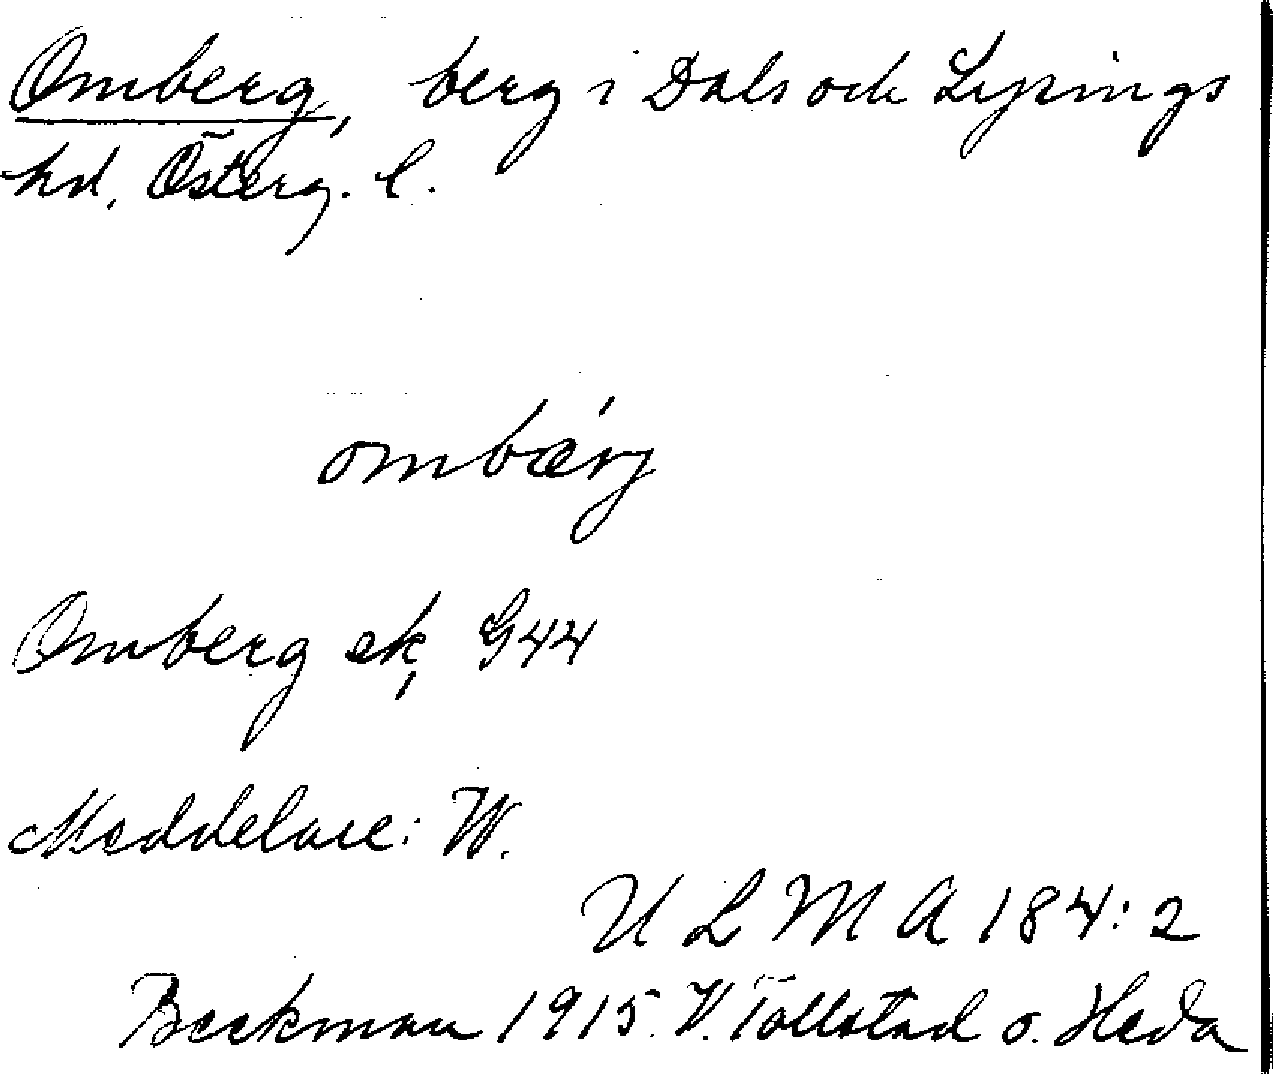 Omberg, berg i Dals och Lysings
hd, Österg. l.
ombærj
Omberg ek, G44
Meddelare: W.
U L M A 184:2
Beckman 1915. V. Tollstad o. Heda